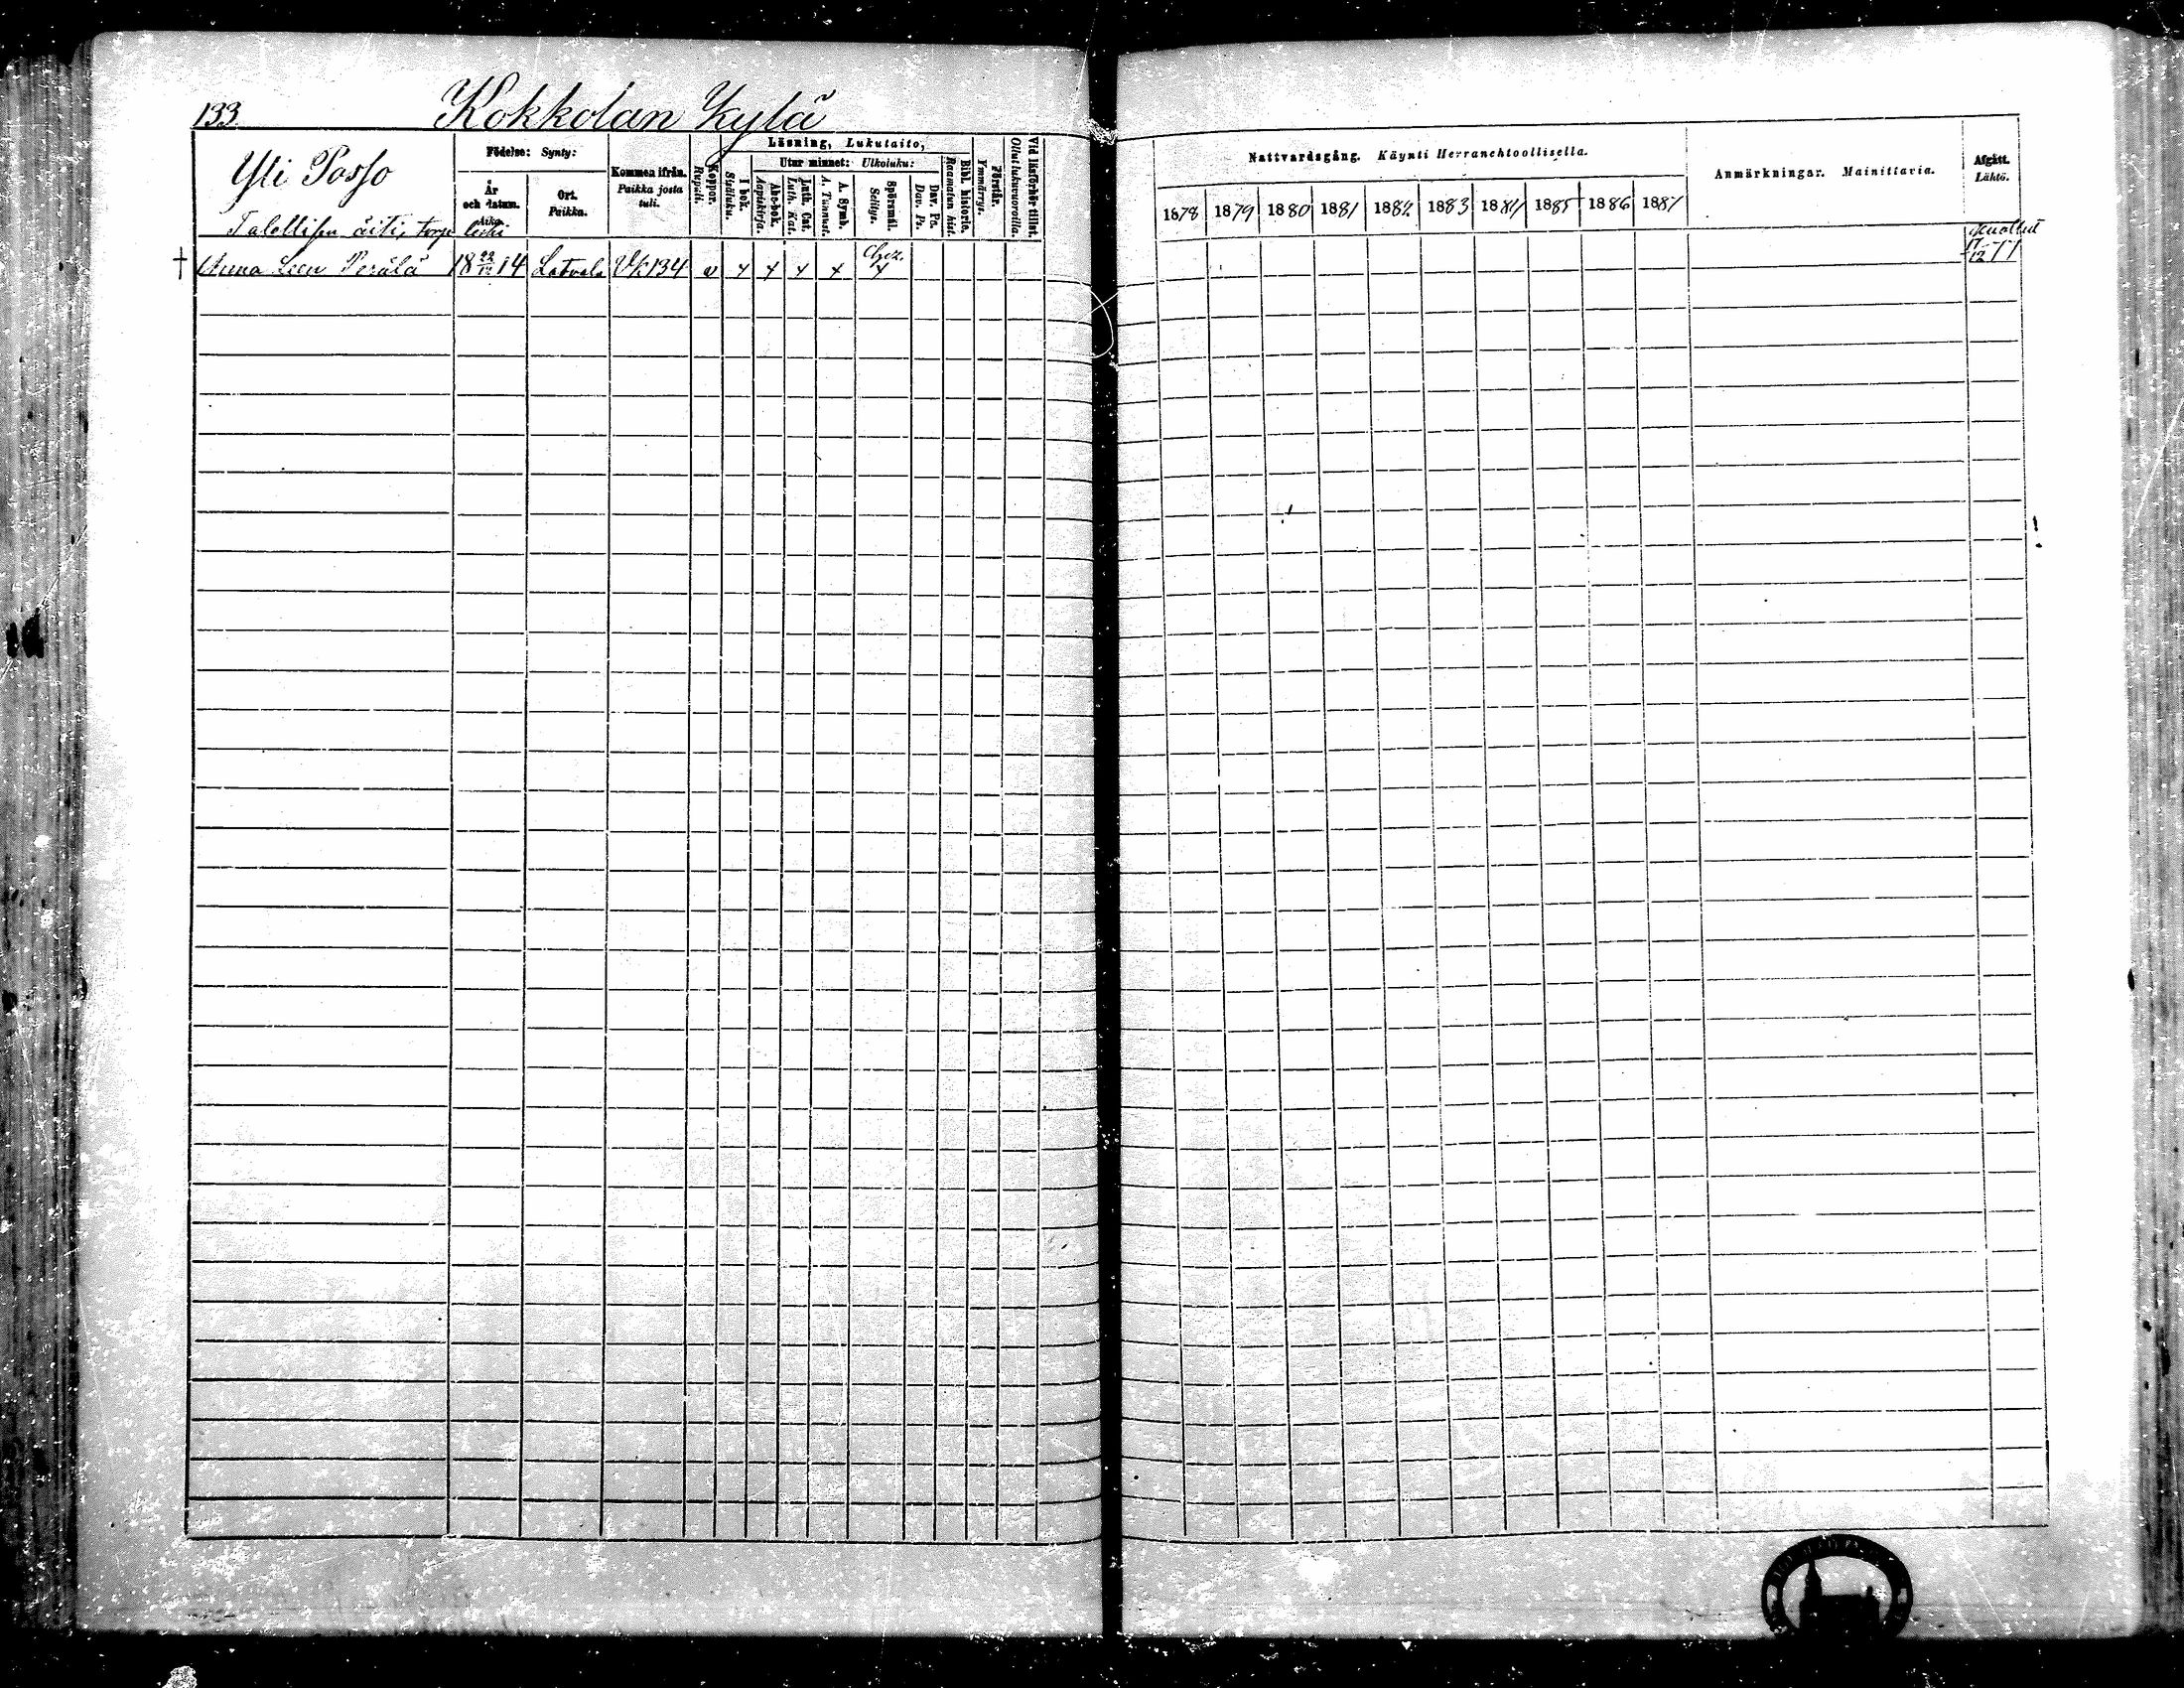 133. Kokkolan Kylä
Yli Passo
Födelse: Synty:
År och datum. Aika.
Ort. Paikka.
Kommen ifrån. Paikka josta tuli.
Koppor. Rupuli.
Läsning, Lukutaito,
I bok. Sisäluku.
Utur minnet: Ulkoluku:
Abc-bok. Aapiskirja.
Luth. Cat. Luth. Kat.
A. Symb. A. Tunnust.
Spörsmål. Selitys.
Dav. Ps. Dav. Ps.
Bibl. historie. Raamatun hist.
Förstår. Ymmärrys.
Vid läsförhör tillst. Ollut lukuvuoroilla.
Nattvardsgång. Käynti Herranehtoollisella.
1878 1879 1880 1881 1882 1883 1884 1885 1886 1887
Anmärkningar. Mainittavia.
Afgått. Lähtö.
Talollisen äiti, torp leski
† Anna Leen Perälä 18 22/12 14 Latvala Vk 134 v x x x x Chez. x kuollut 17/12 77